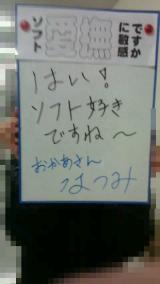 ソフト愛撫に敏感ですか
はい!
ソフト好き
ですね〜
おかあさん
はつみ